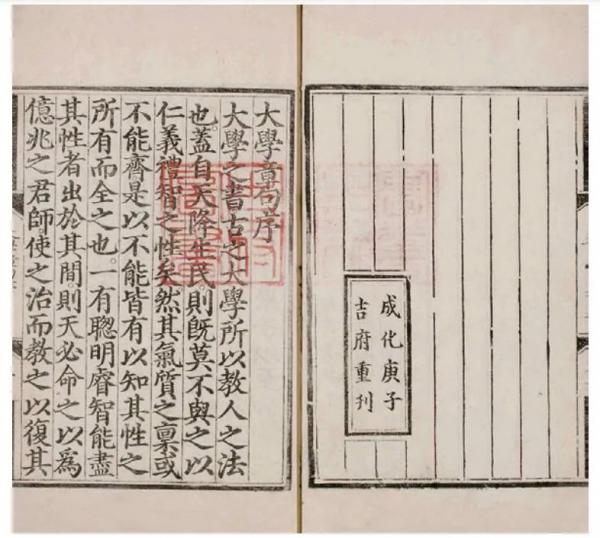 成化庚子
吉府重刊
大學章句序
大學之書古之大學所以教人之法
也蓋自天降生民則既莫不與之以
仁義禮智之性矣然其氣質之稟或
不能齊是以不能皆有以知其性之
所有而全之也一有聰明睿智能盡
其性者出於其間則天必命之以爲
億兆之君師使之治而教之以復其